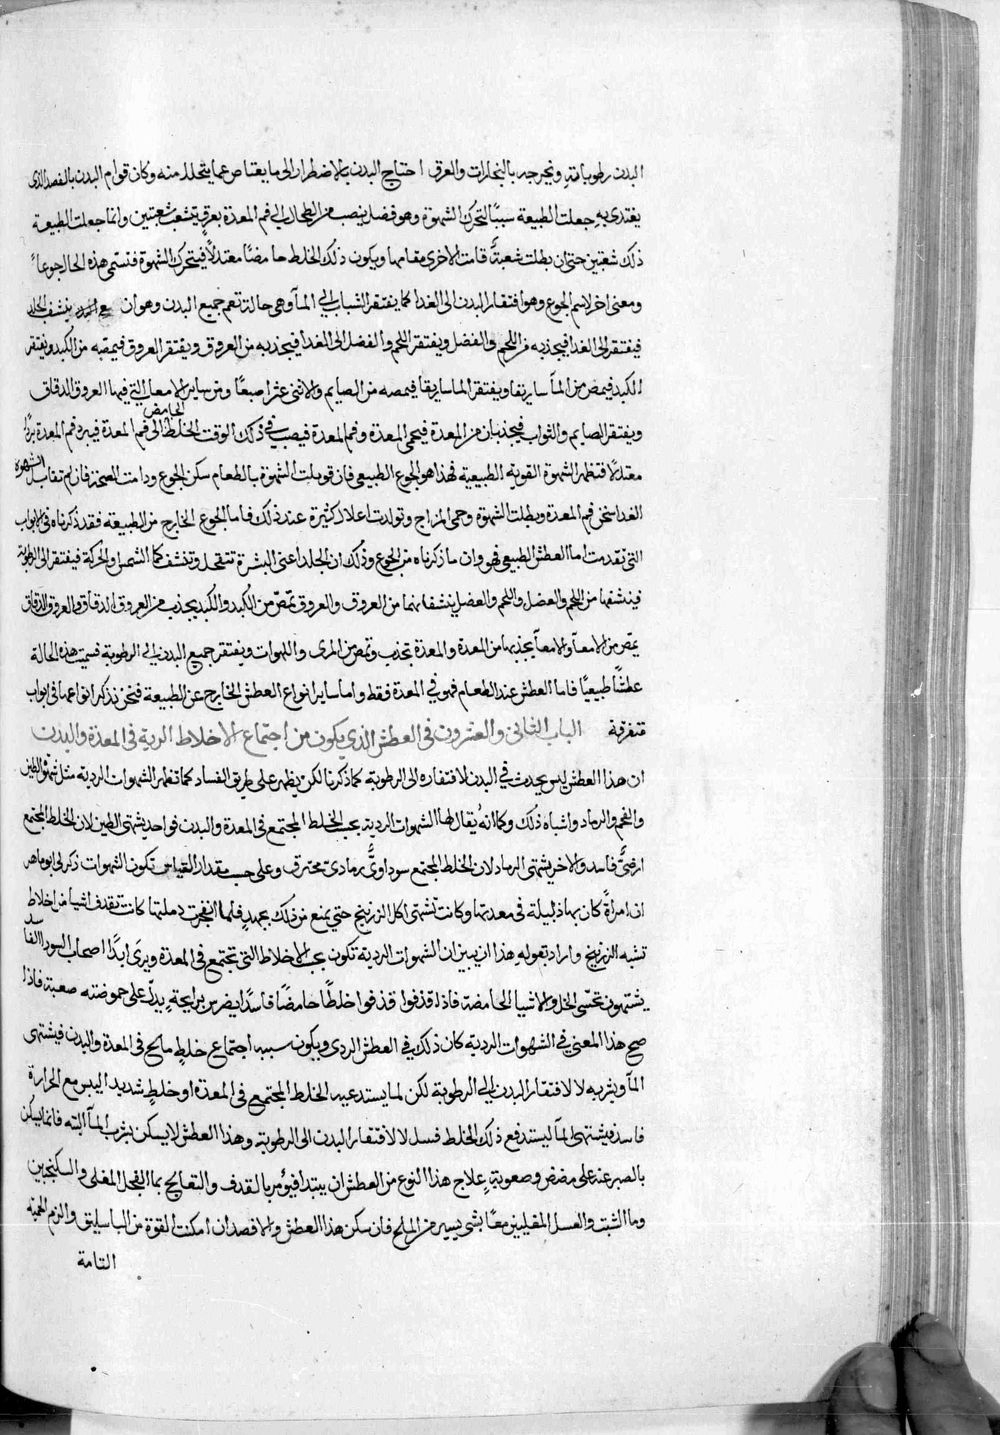 البدن رطوباته ويخرجه بالبخارات والعرق احتاج البدن بالاضطرار الى ما يعتاض عما يتحلل منه وكان قوام البدن بالفصد الذى
يغتدى به جعلت الطبيعة سببًا لتحرك الشهوة وهو فضل ينصب من الطحال الى فم المعدة بعرق يتشعب شعبتين وانما جعلت الطبيعة
ذلك شعبتين حتى ان بطلت شعبة قامت الاخرى مقامها ويكون ذلك الخلط حامضًا معتدلًا فيتحرك الشهوة فنسمى هذه الحال جوعاً
ومعنى اخر لاسم الجوع وهو افتقار البدن الى الغدا كما يفتقر الشباب الى المآ وهى حالة تعم جميع البدن وهو ان ينشف الجلد
فيفتقر الى الغدا فيجذبه من اللحم والفضل ويفتقر اللحم والفضل الى الغدا فيجذبه من العروق ويفتقر العروق فيمصه من الكبد ويفتقر
الكبد فيمص من الماسارتقا ويفتقر الماسارىقا فيمصه من الصايم والاثنى عشر اصبعًا ومن ساير الامعا التى فيها العروق الدقاق
ويفتقر الصايم والثواب فيجذبان من المعدة فيحمى المعدة وفم المعدة فيصب فى ذلك الوقت الخلط الحامض الى فم المعدة فيبرد فم المعدة بردًا
معتدلًا فتظهر الشهوة القوية الطبيعية فهذا هو الجوع الطبيعى فان قوبلت الشهوة بالطعام سكن الجوع ودامت الصحة فان لم تقابل الشهوة
الغدا سخن فم المعدة وبطلت الشهوة وحمى المزاج وتولدت اعلال كثيرة عند ذلك فاما الجوع الخارج من الطبيعة فقد ذكرناه فى الابواب
التى تقدمت اما العطش الطبيعى فهو وان ما ذكرناه من الجوع وذلك ان الجلد اعنى البشرة تتقحل وتنشف كما الشمس والحركة فيفتقر الى الرطوبة
فينشفها من اللحم والعضل واللحم والعضل ينشفانها من العروق والعروق تمصّ من الكبد والكبد يجذب من العروق الدقاق والعروق الدقاق
يمص من الامعآ والامعآ يجذبها من المعدة والمعدة تجذب وتمص من المرى واللهوات ويفتقر جميع البدن الى الرطوبة فسميت هذه الحالة
عطشًا طبيعيًا فاما العطش عند الطعام فهو فى المعدة فقط واما ساير انواع العطش الخارج عن الطبيعة فنحن نذكر انواعها فى ابواب
متفرقة الباب الثانى والعشرون فى العطش الذى يكون من اجتماع الاخلاط الردية فى المعدة والبدن
ان هذا العطش ليس يحدث فى البدن لافتقاره الى الرطوبة كما ذكرنا لكن يظهر على طريق الفساد كما تظهر الشهوات الردية مثل شهوة الطين
والفحم والرماد واشباه ذلك وكما انه يُقال لها الشهوات الردية بحب الخلط المجتمع فى المعدة والبدن فواحد يشتهى الطين لان الخلط المجتمع
ارضىٌّ فاسد والاخر يشتهى الرماد لان الخلط المجتمع سوداوىٌّ رمادى محترق وعلى حسب مقدار القياس تكون الشهوات ذكر لى ابو ماهر
ان امراةً كان بها دبيلة فى معدتها وكانت تشتهى اكل الزرنيخ حتى يمنع من ذلك بجهدٍ فلما انفجرت دملتها كانت تقدف اشيا من اخلاط
تشبه الزرنيخ واراد بقوله هذا ان يبين ان الشهوات الردية تكون بحب الاخلاط التى تجتمع فى المعدة ويرى ابدًا اصحاب السودا الفاسد
يشتهون تحسّى الخل والاشيا الحامضة فاذا قذفوا قذفوا خلطًا حامضًا فاسدًا يضرس برايحةٍ يدلّ على حموضته صعبة فاذا
صح هذا المعنى فى الشهوات الردية كان ذلك فى العطش الردى ويكون سببه اجتماع خلطٍ مالح فى المعدة والبدن فيشتهى
المآ ويشربه لا لافتقار البدن الى الرطوبة لكن لما يستدعيه الخلط المجتمع فى المعدة او خلطٍ شديد اليبس مع الحرارة
فاسد فيشتهى المآ ليستدفع ذلك الخلط فسل لا لافتقار البدن الى الرطوبة وهذا العطش لا يسكن بشرب المآ البتة فانما يسكن
بالصبر عنه على مضض وصعوبةٍ علاج هذا النوع من العطش ان يبتدا فيؤمر بالقدف والتعالج بما الفجل المغلى والسكنجبين
وما الشبت والعسل المقليين معًا بشى يسير من الملح فان سكن هذا العطش والا فصد ان امكنت القوة من الباسليق والزم الحمية
التامة